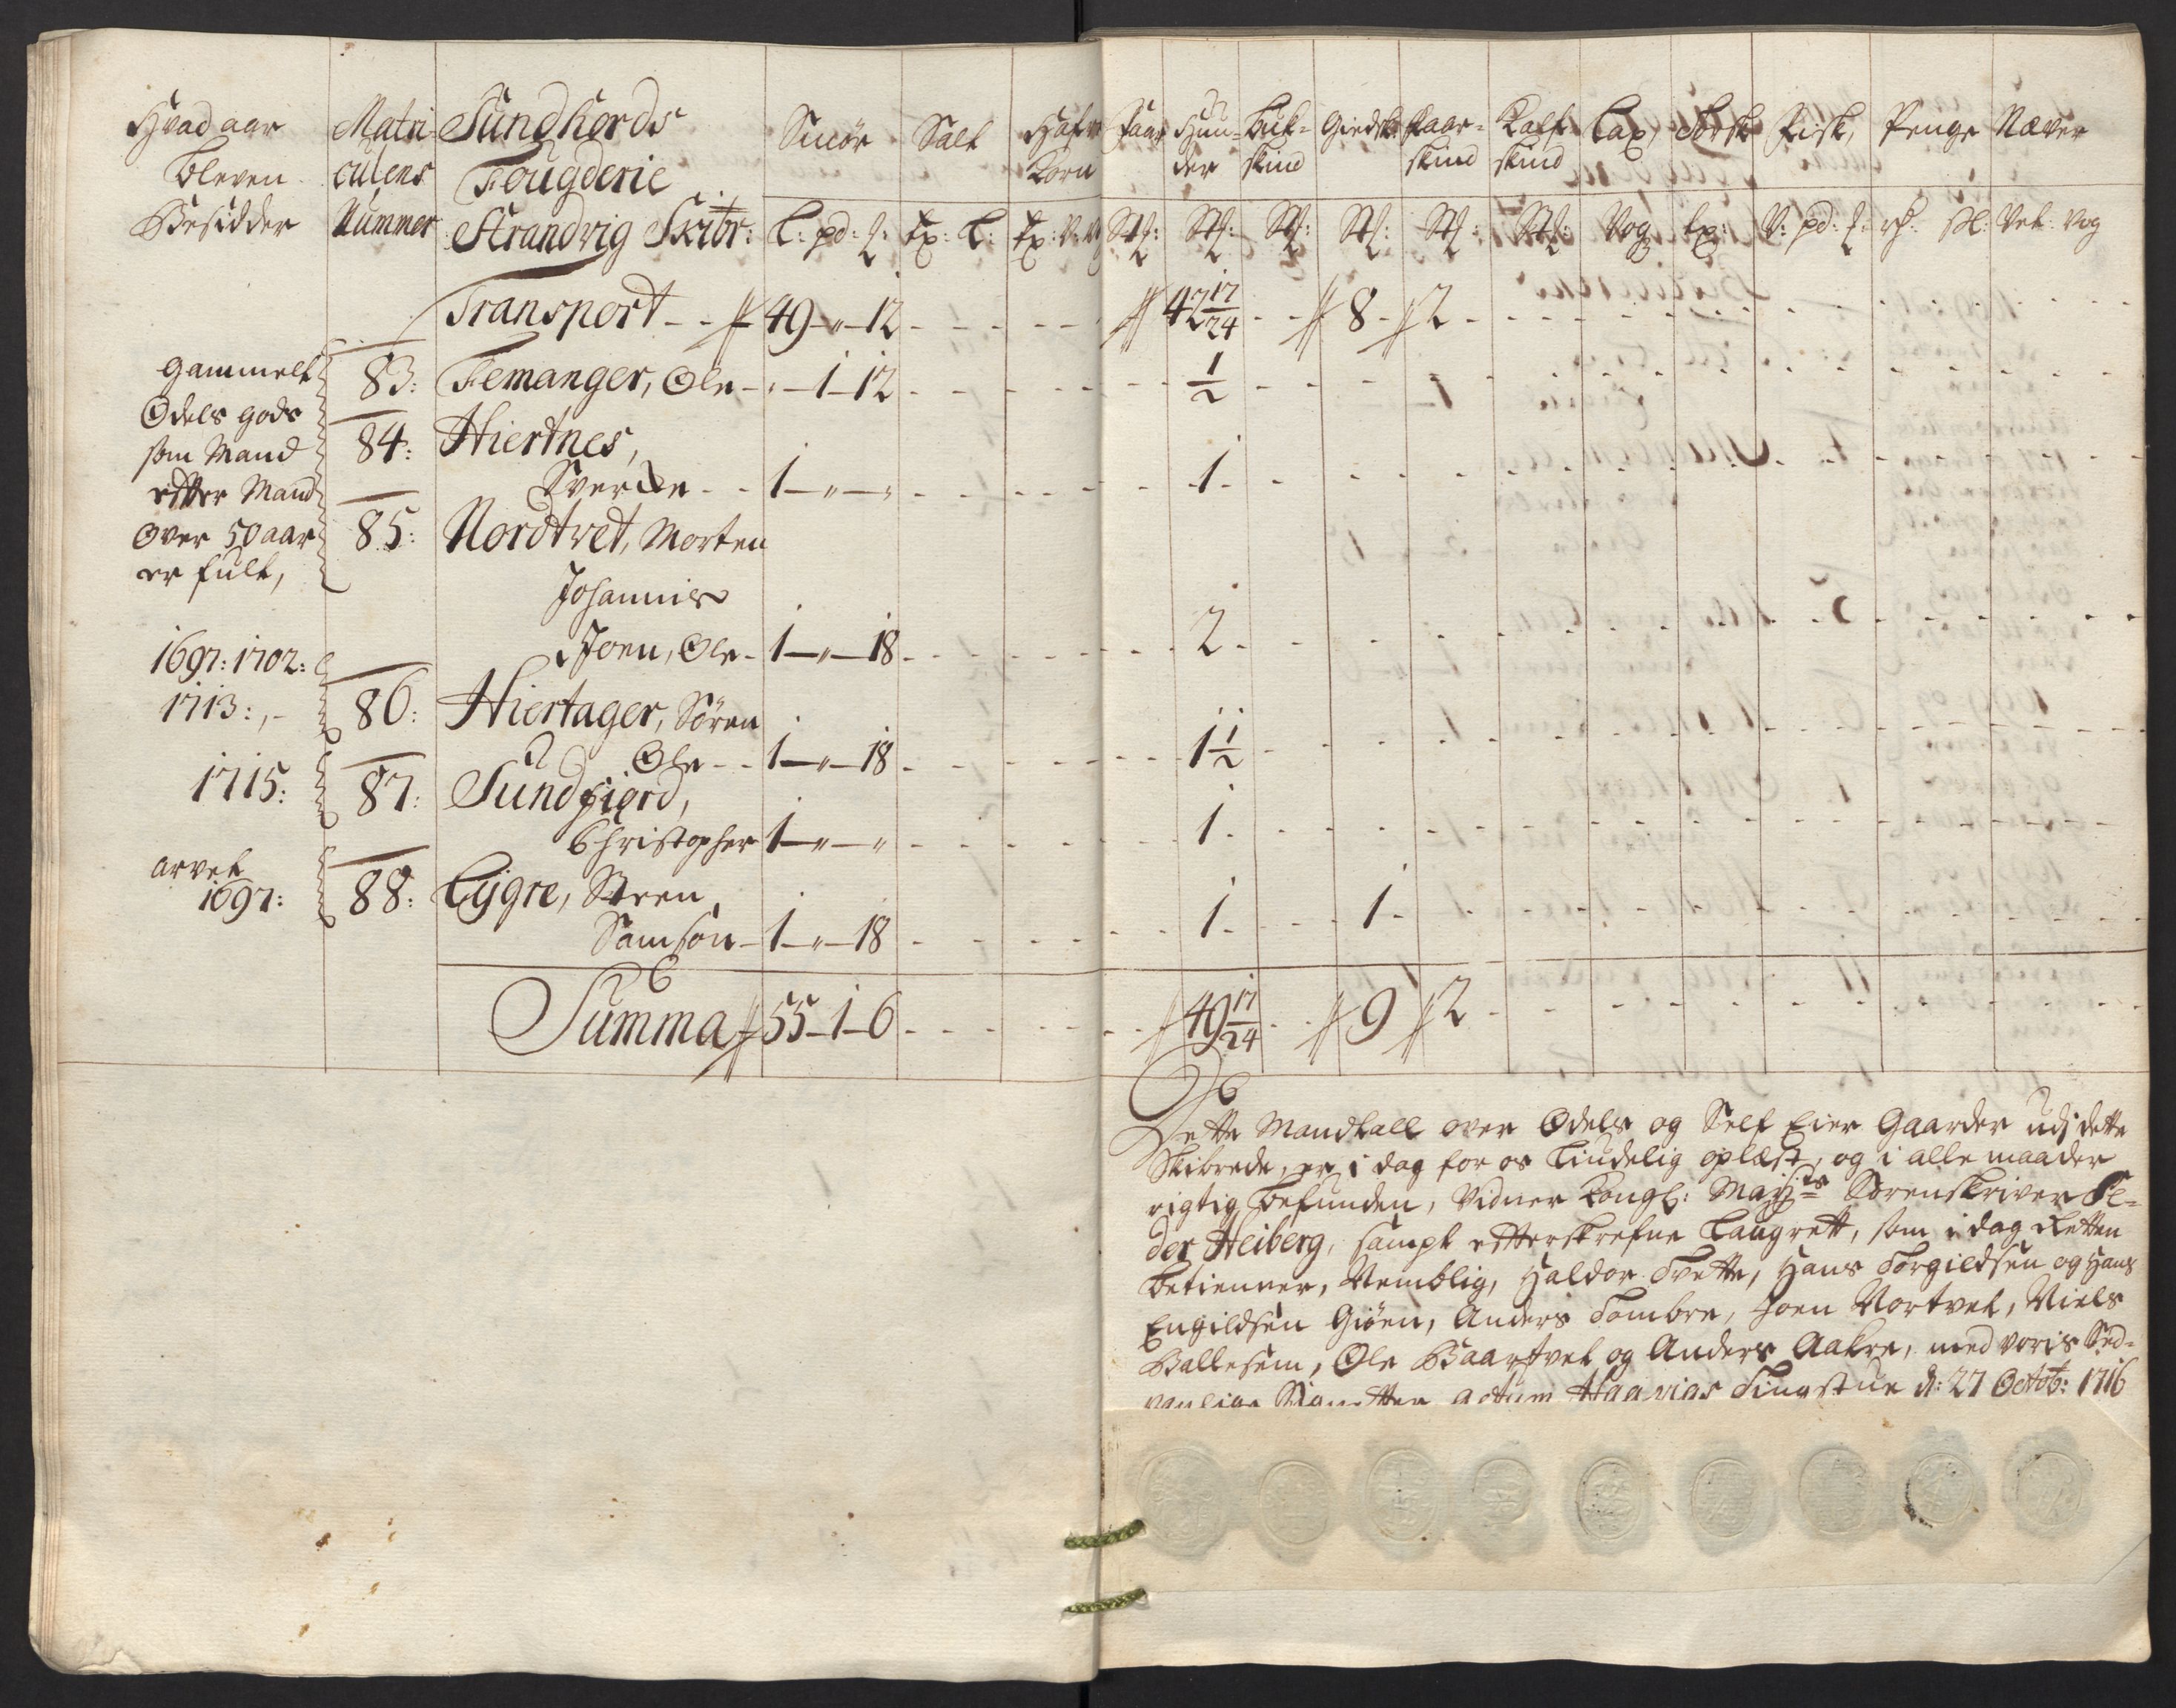 Hvad aar
bleven
Besidder
Matri-
culens
Nummer
Sundhords
Fougderie
Strandvig Skibr:
Smör
L: pd: ℔:
Salt
Tp: L:
Hafre
Korn
Faar
Stk:
Huu-
der
Stk:
Buk-
skind
Stk:
Giedsk:
Stk:
Faar-
skind
Stk:
Kalf
skind
Stk:
Lax,
Vog
Torsk
Tp:
Fisk,
V: pd: ℔:
Penge
rd: sk:
Næver
Vet: Vog
Transport - - 49 - " - 12 - - - 42 17/24 - - 8 - 2 -
Gammelt
Odels gods
som Mand
efter Mand
over 50 aar
er fult,
83: Femanger, Ole - " - 1 - 12 - - - 1/2 -
84: Hiertnes,
Sverke - - 1 - " - " - - - 1 -
85: Nordtvet, Morten
Johannis
Joen, Ole - 1 - " - 18 - - - 2 -
1697: 1702:
1713:, -
86: Hiertager, Sören
Ole - - 1 - " - 18 - - - 1 1/2 -
1715:
87: Sundfiord,
Christopher 1 - " - " - - - 1 -
arvet
1697:
88: Lygre, Steen,
Samson - 1 - " - 18 - - - 1 - - - 1 -
Summa 55 - 1 - 6 - - - 49 17/24 - - 9 2 -
Dette Mandtall over Odels og Self Eier Gaarder udj dette
Skibrede, er i dag for os tiudelig oplæst, og i alle maader
rigtig befunden, Vidner Kongl: Mayts Sorenskriver Pe-
der Heiberg, sampt efterskrefne Laugrett, som i dag Retten
betienner, Nemblig, Haldor Tvette, Hans Torgildsen og Hans
Engildsen Giöen, Anders Tombre, Joen Nortvet, Niels
Ballesem, Ole Baartvet og Anders Aakre, med voris Sed-
vanlige Signetter Actum Haavigs Tingstue d: 27 Octob: 1716